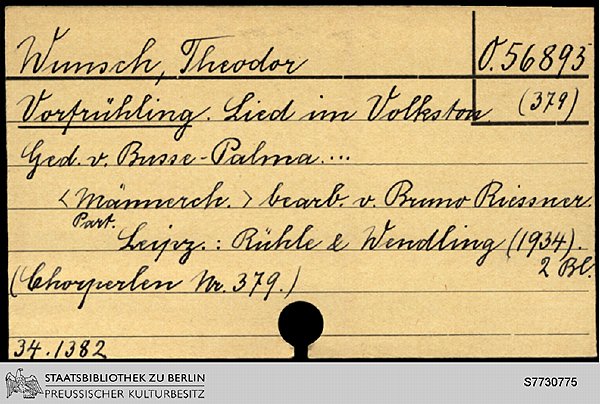 Wunsch, Theodor
O. 56895
(379)
Vorfrühling. Lied im Volkston
Ged. v. Busse-Palma....
<Männerch.> bearb. v. Bruno Riessner.
Part.
Leipz.: Rühle & Wendling (1934).
2 Bl.
(Chorperlen Nr. 379.)
34.1382
STAATSBIBLIOTHEK ZU BERLIN
PREUSSISCHER KULTURBESITZ
S7730775